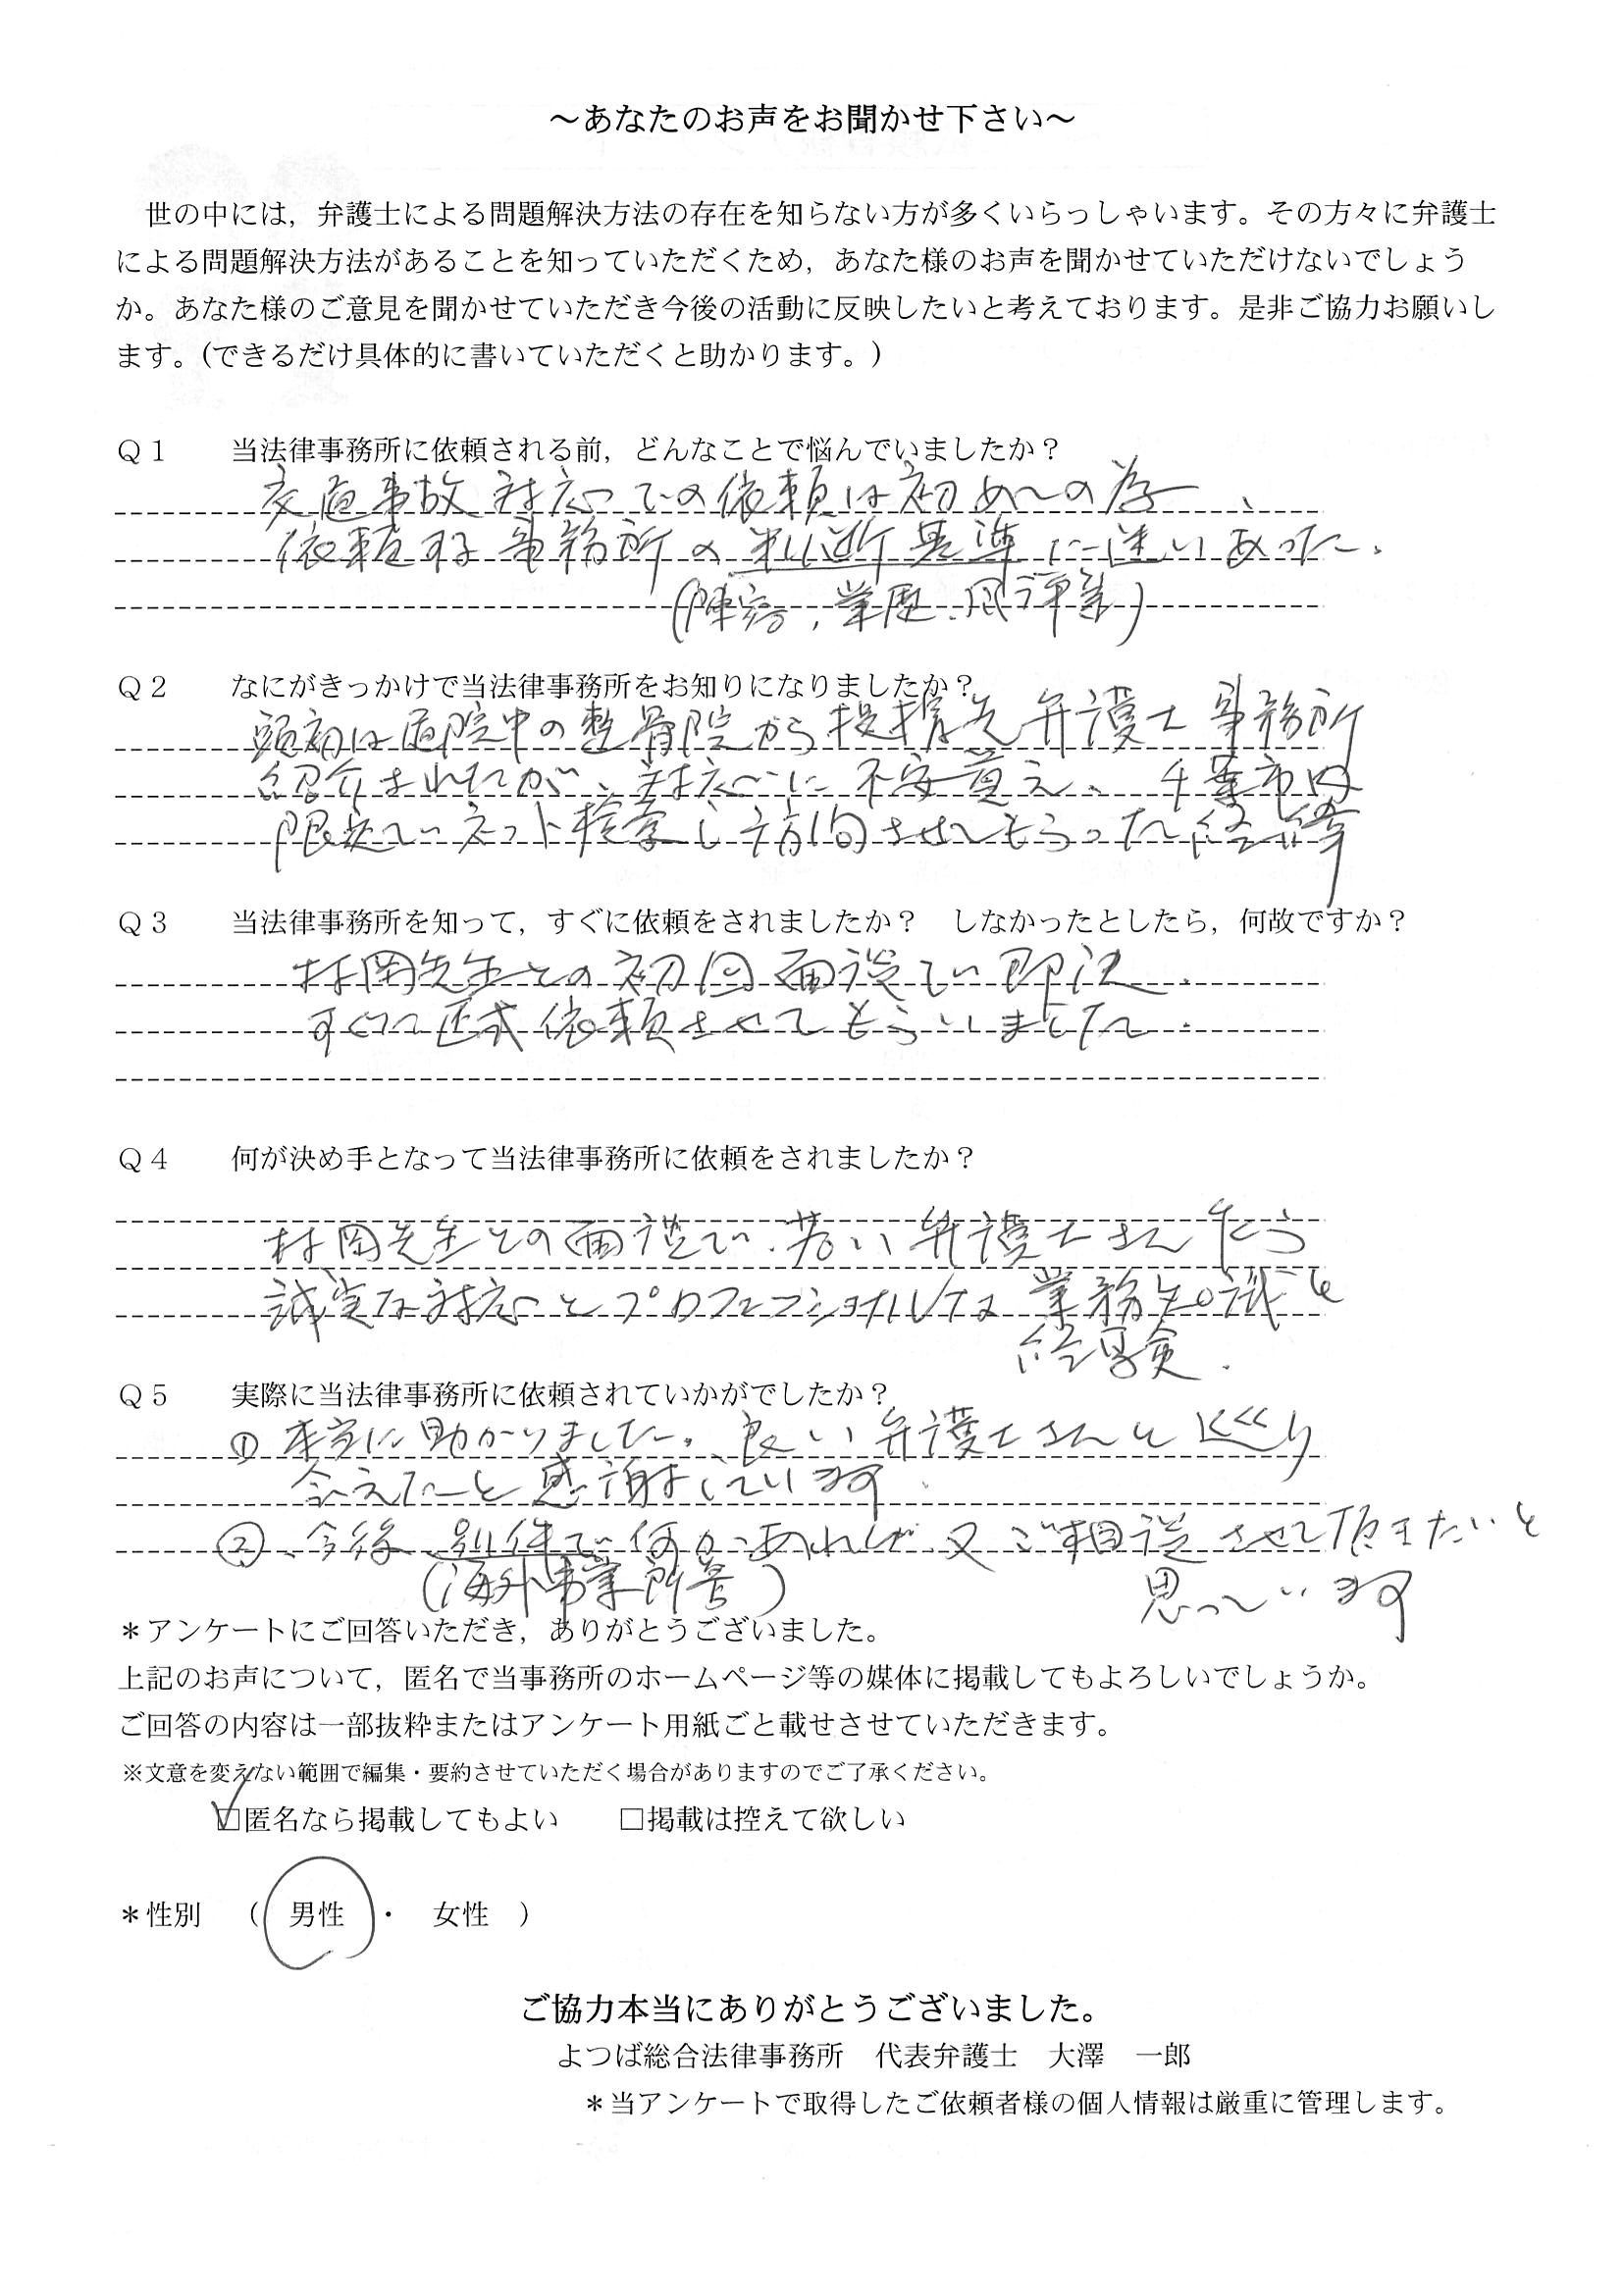 ～あなたのお声をお聞かせ下さい～
世の中には，弁護士による問題解決方法の存在を知らない方が多くいらっしゃいます。その方々に弁護士
による問題解決方法があることを知っていただくため，あなた様のお声を聞かせていただけないでしょう
か。あなた様のご意見を聞かせていただき今後の活動に反映したいと考えております。是非ご協力お願いし
ます。（できるだけ具体的に書いていただくと助かります。）
Ｑ１　当法律事務所に依頼される前，どんなことで悩んでいましたか？
交通事故対応での依頼は初めての為、
依頼する事務所の判断基準に迷いあった。
(陣容，業歴、風評等)
Ｑ２　なにがきっかけで当法律事務所をお知りになりましたか？
頭初は通院中の整骨院から提携先弁護士事務所
紹介されたが、対応に不安覚え、千葉市内
限定でネット検索し訪問させてもらった経緯
Ｑ３　当法律事務所を知って，すぐに依頼をされましたか？　しなかったとしたら，何故ですか？
村岡先生との初回面談で即決、
すぐに正式依頼させてもらいました。
Ｑ４　何が決め手となって当法律事務所に依頼をされましたか？
村岡先生との面談で、若い弁護士さん乍ら
誠実な対応とプロフェッショナルな業務知識と
経験．
Ｑ５　実際に当法律事務所に依頼されていかがでしたか？
① 本当に助かりました。良い弁護士さんと巡り
会えたと感謝しています．
②、今後 別件で何かあれば又ご相談させて頂きたいと
(海外事業所等)
思っています
＊アンケートにご回答いただき，ありがとうございました。
上記のお声について，匿名で当事務所のホームページ等の媒体に掲載してもよろしいでしょうか。
ご回答の内容は一部抜粋またはアンケート用紙ごと載せさせていただきます。
※文意を変えない範囲で編集・要約させていただく場合がありますのでご了承ください。
☑匿名なら掲載してもよい　□掲載は控えて欲しい
＊性別　（　男性　・　女性　）
ご協力本当にありがとうございました。
よつば総合法律事務所　代表弁護士　大澤　一郎
＊当アンケートで取得したご依頼者様の個人情報は厳重に管理します。